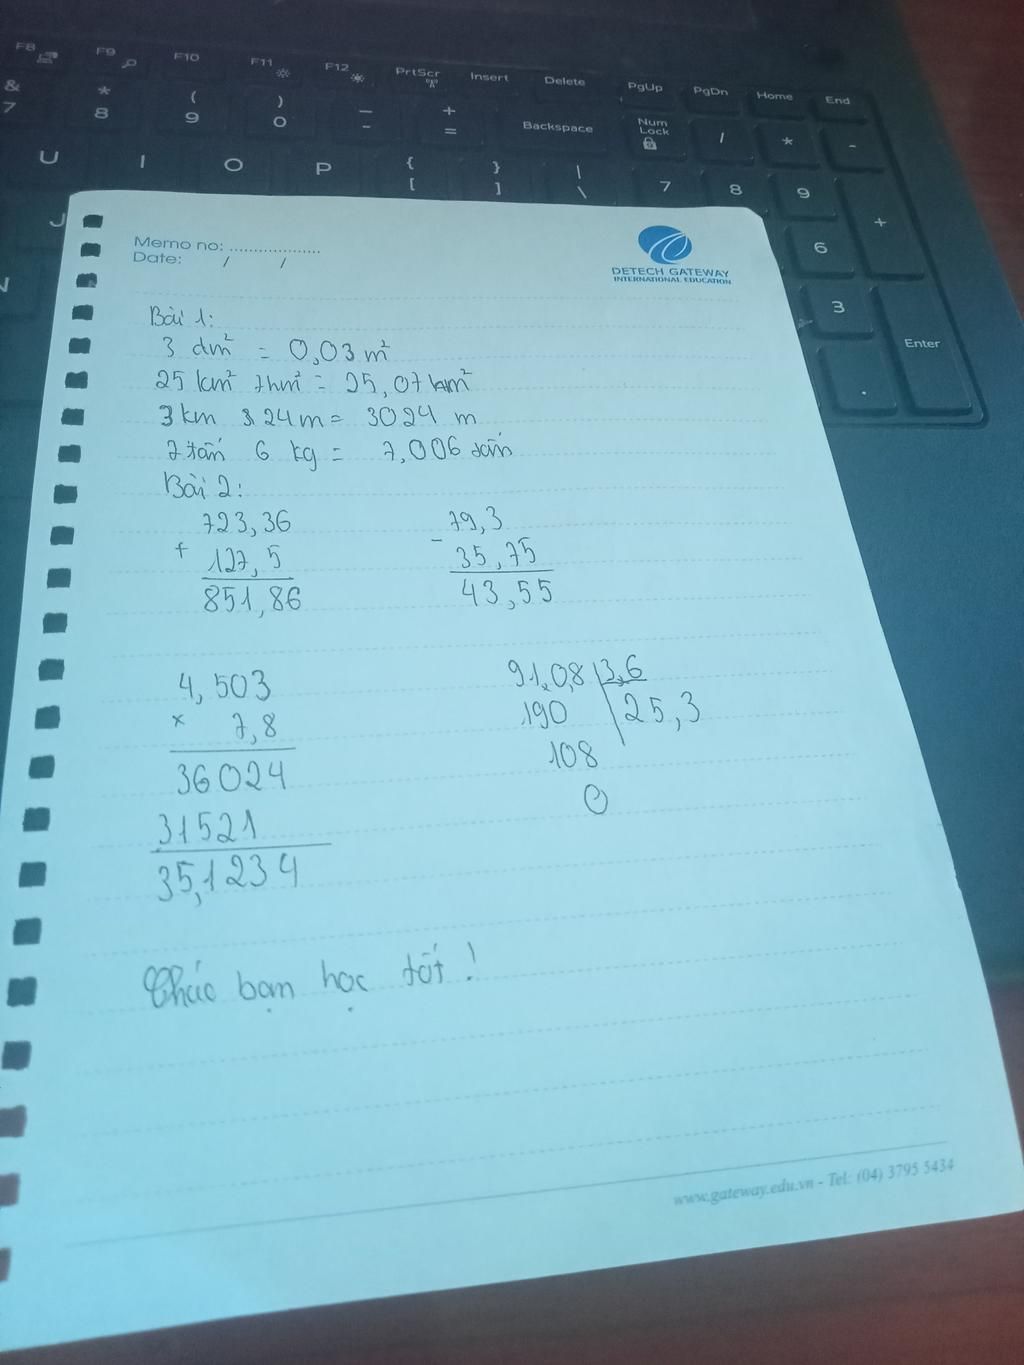 F8 F9 F10 F11 F12 PrtScr Insert Delete PgUp PgDn Home End
& 7 * 8 ( 9 ) 0 _ - + = Backspace Num Lock / * -
U I O P { [ } ] | \ 7 8 9 +
J 6
3 Enter
.
Memo no: ...................
Date: / /
DETECH GATEWAY
INTERNATIONAL EDUCATION
Bài 1:
3 dm² = 0,03 m²
25 km² 7hm² = 25,07 km²
3 km 24 m = 3024 m
7 tấn 6 kg = 7,006 tấn
Bài 2:
723,36 79,3
+ 127,5 - 35,75
851,86 43,55
4,503 91,0,8 3,6
× 7,8 190 25,3
36024 108
31521 0
35,1234
Chúc bạn học tốt !
www.gateway.edu.vn - Tel: (04) 3795 5434